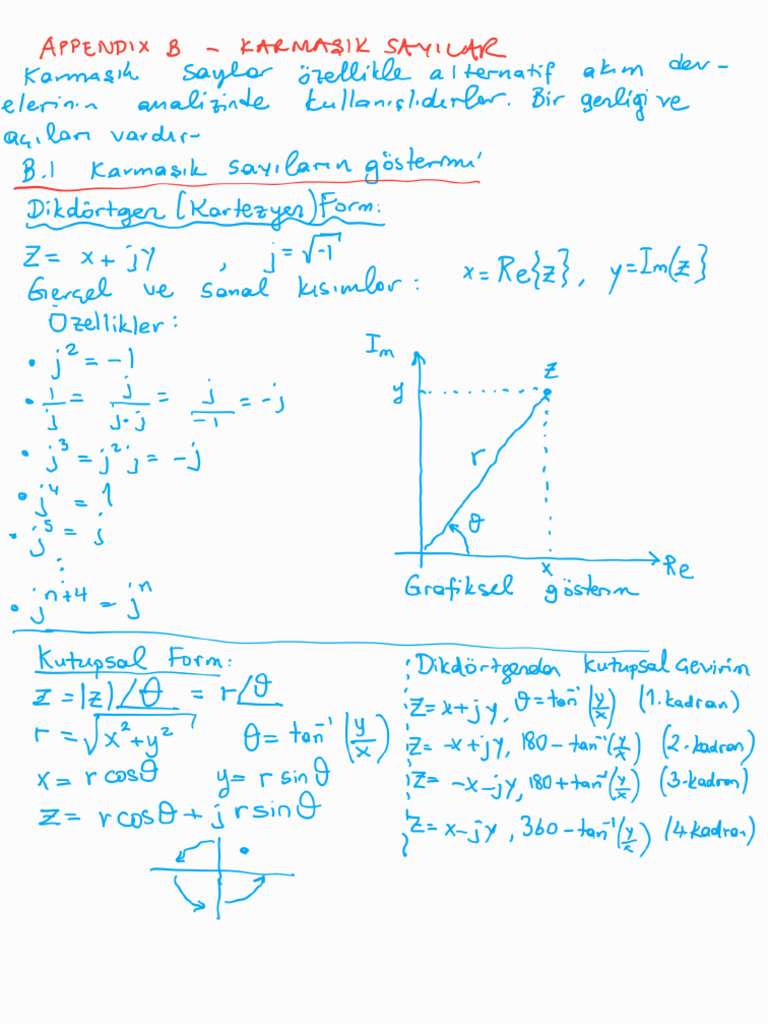 APPENDIX B - KARMAŞIK SAYILAR
Karmaşık sayılar özellikle alternatif akım dev-
elerinin analizinde kullanışlıdırlar. Bir genliği ve
açıları vardır-
B.1 Karmaşık sayıların gösterimi
Dikdörtgen (Kartezyen) Form:
Z = x + jy , j = √-1
Gerçel ve sanal kısımlar : x = Re{z}, y = Im{z}
Özellikler :
• j² = -1
• 1/j = j/(j·j) = j/-1 = -j
• j³ = j²j = -j
• j⁴ = 1
• j⁵ = j
⋮
• jⁿ⁺⁴ = jⁿ
Im
y
z
r
θ
x
Re
Grafiksel gösterim
Kutupsal Form:
z = |z| ∠θ = r∠θ
r = √(x² + y²) θ = tan⁻¹(y/x)
x = r cosθ y = r sinθ
z = r cosθ + j r sinθ
Dikdörtgenden Kutupsal Çevirim
Z = x + jy, θ = tan⁻¹(y/x) (1. kadran)
Z = -x + jy, 180 - tan⁻¹(y/x) (2. kadran)
Z = -x - jy, 180 + tan⁻¹(y/x) (3. kadran)
Z = x - jy, 360 - tan⁻¹(y/x) (4 kadran)